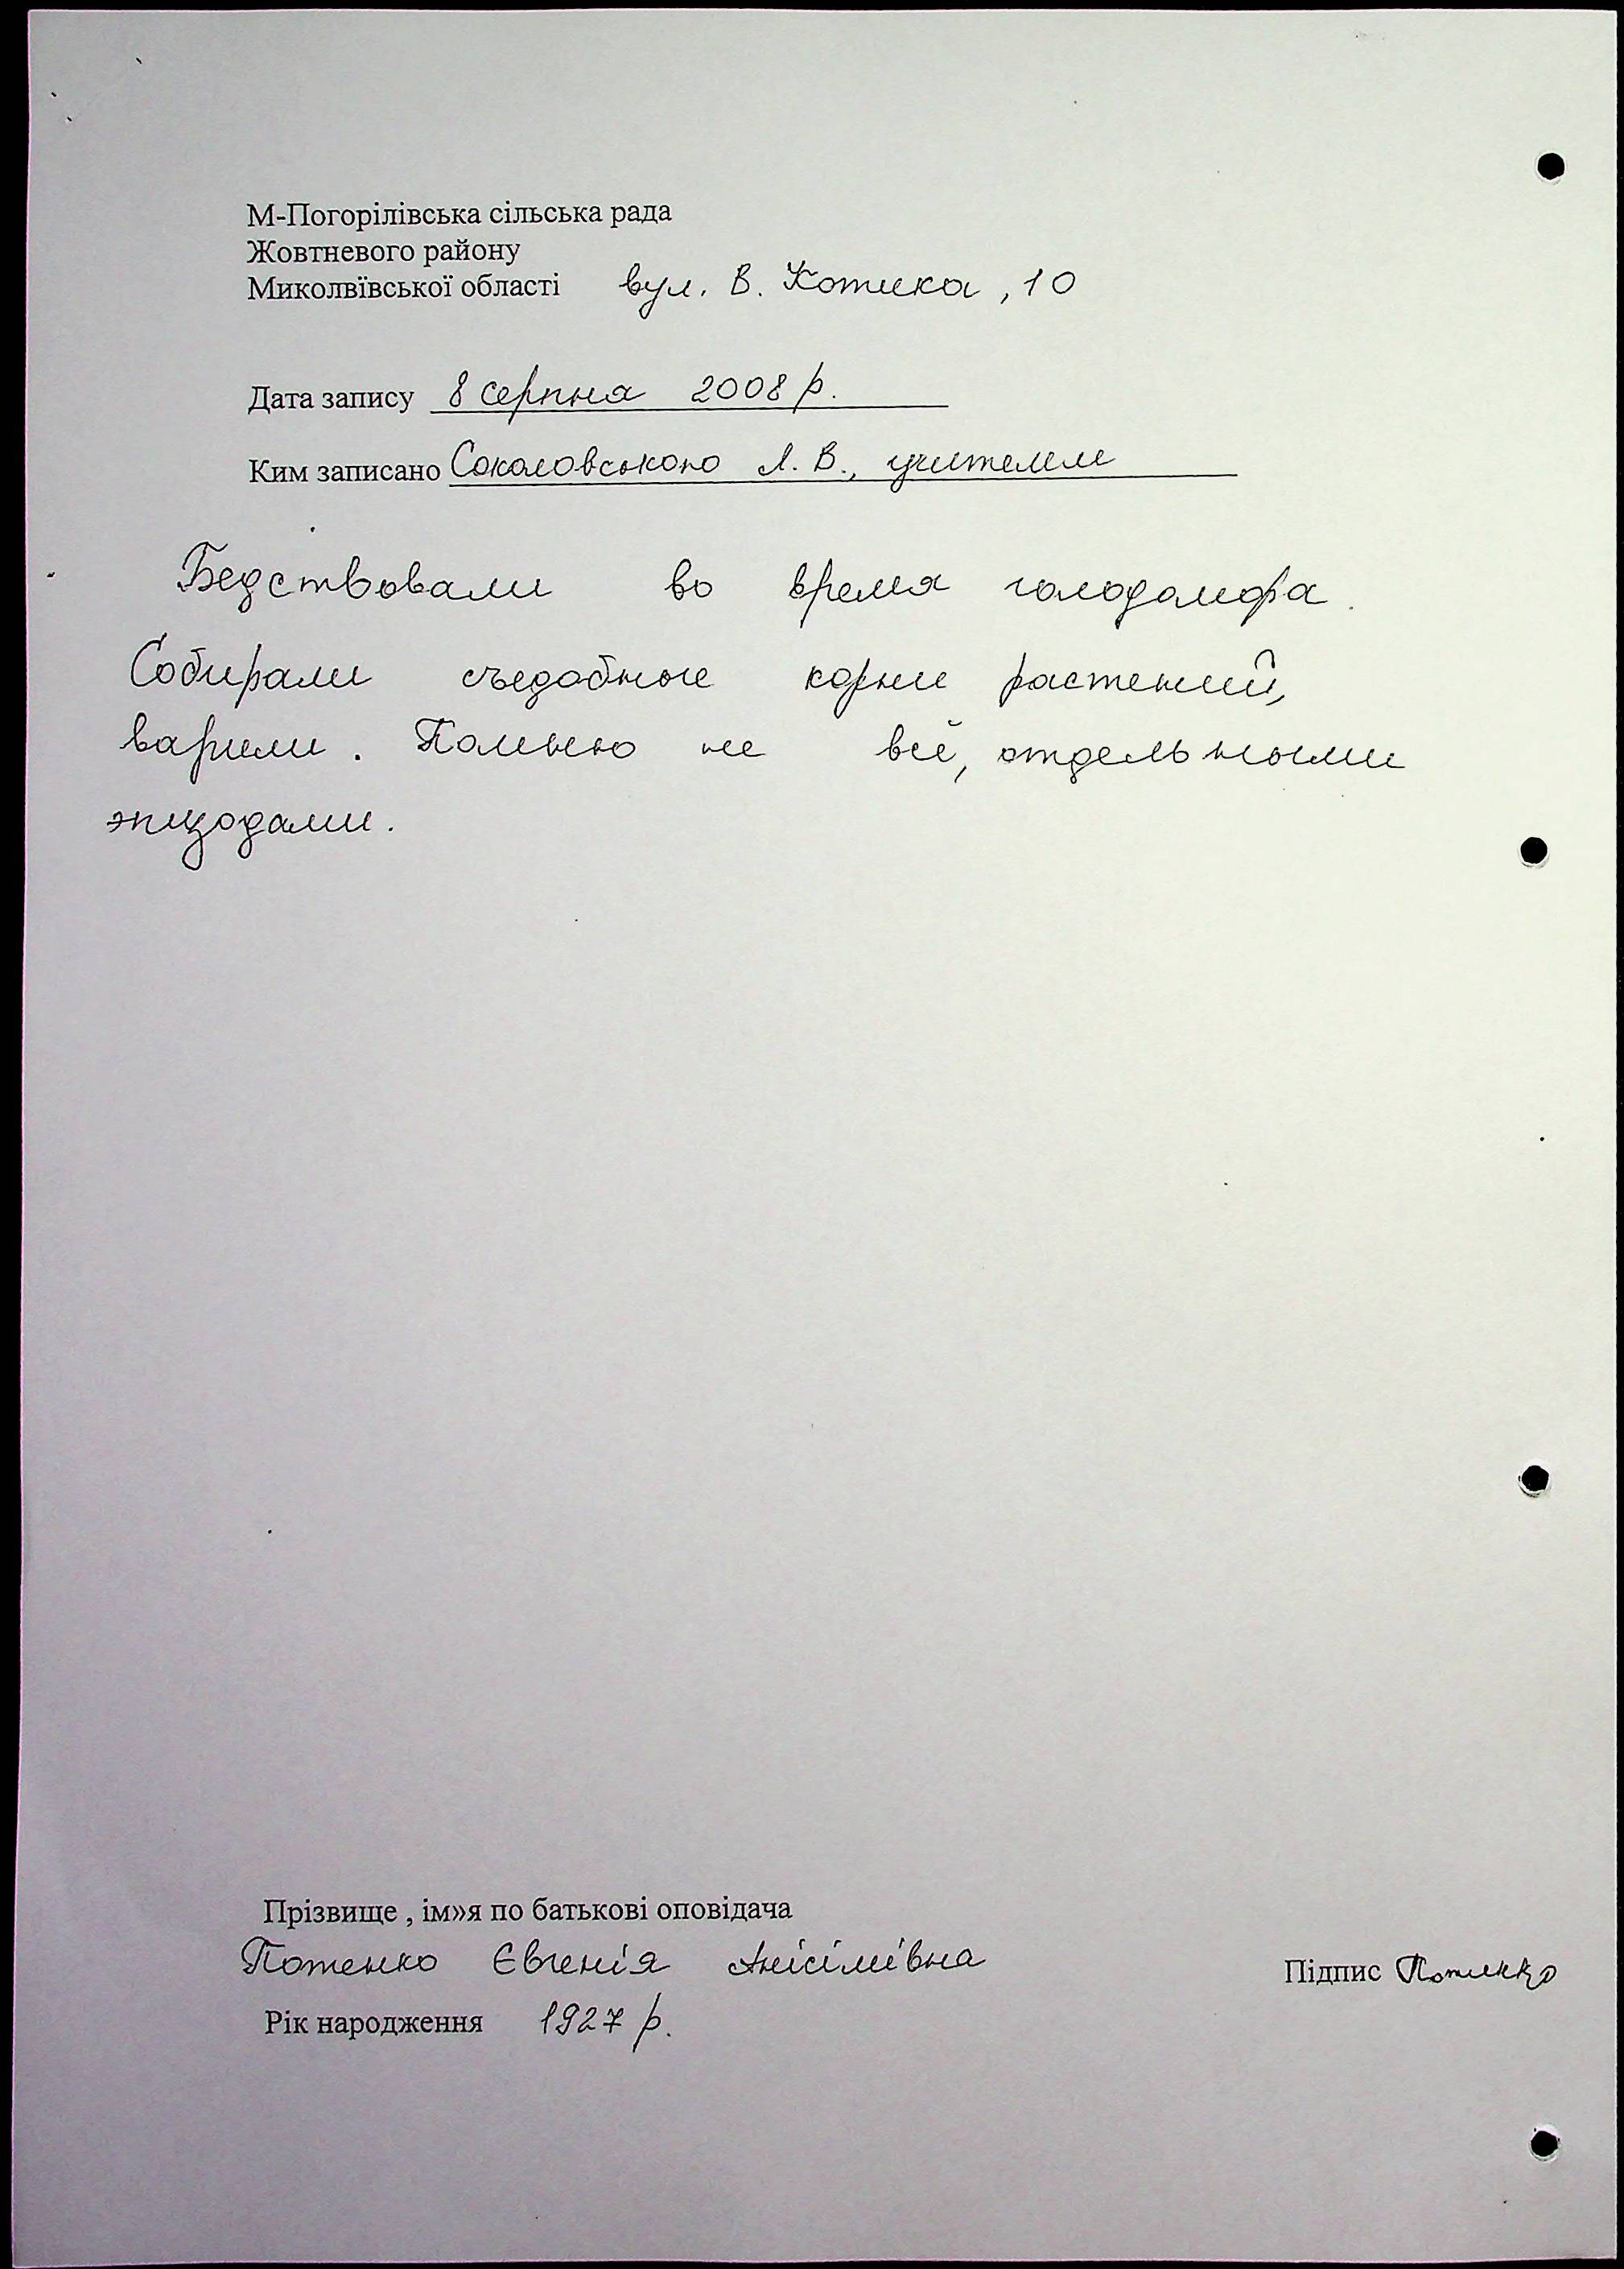 М-Погорілівська сільська рада
Жовтневого району
Миколвївської області вул. В. Котика, 10
Дата запису 8 серпня 2008 р.
Ким записано Соколовського Л. В., учителем
Бедствовали во время голодомора.
Собирали съедобные корни растений,
варили. Помню не всё, отдельными
эпизодами.
Прізвище , ім»я по батькові оповідача
Потенко Євгенія Анісімівна
Підпис Потенко
Рік народження 1927 р.